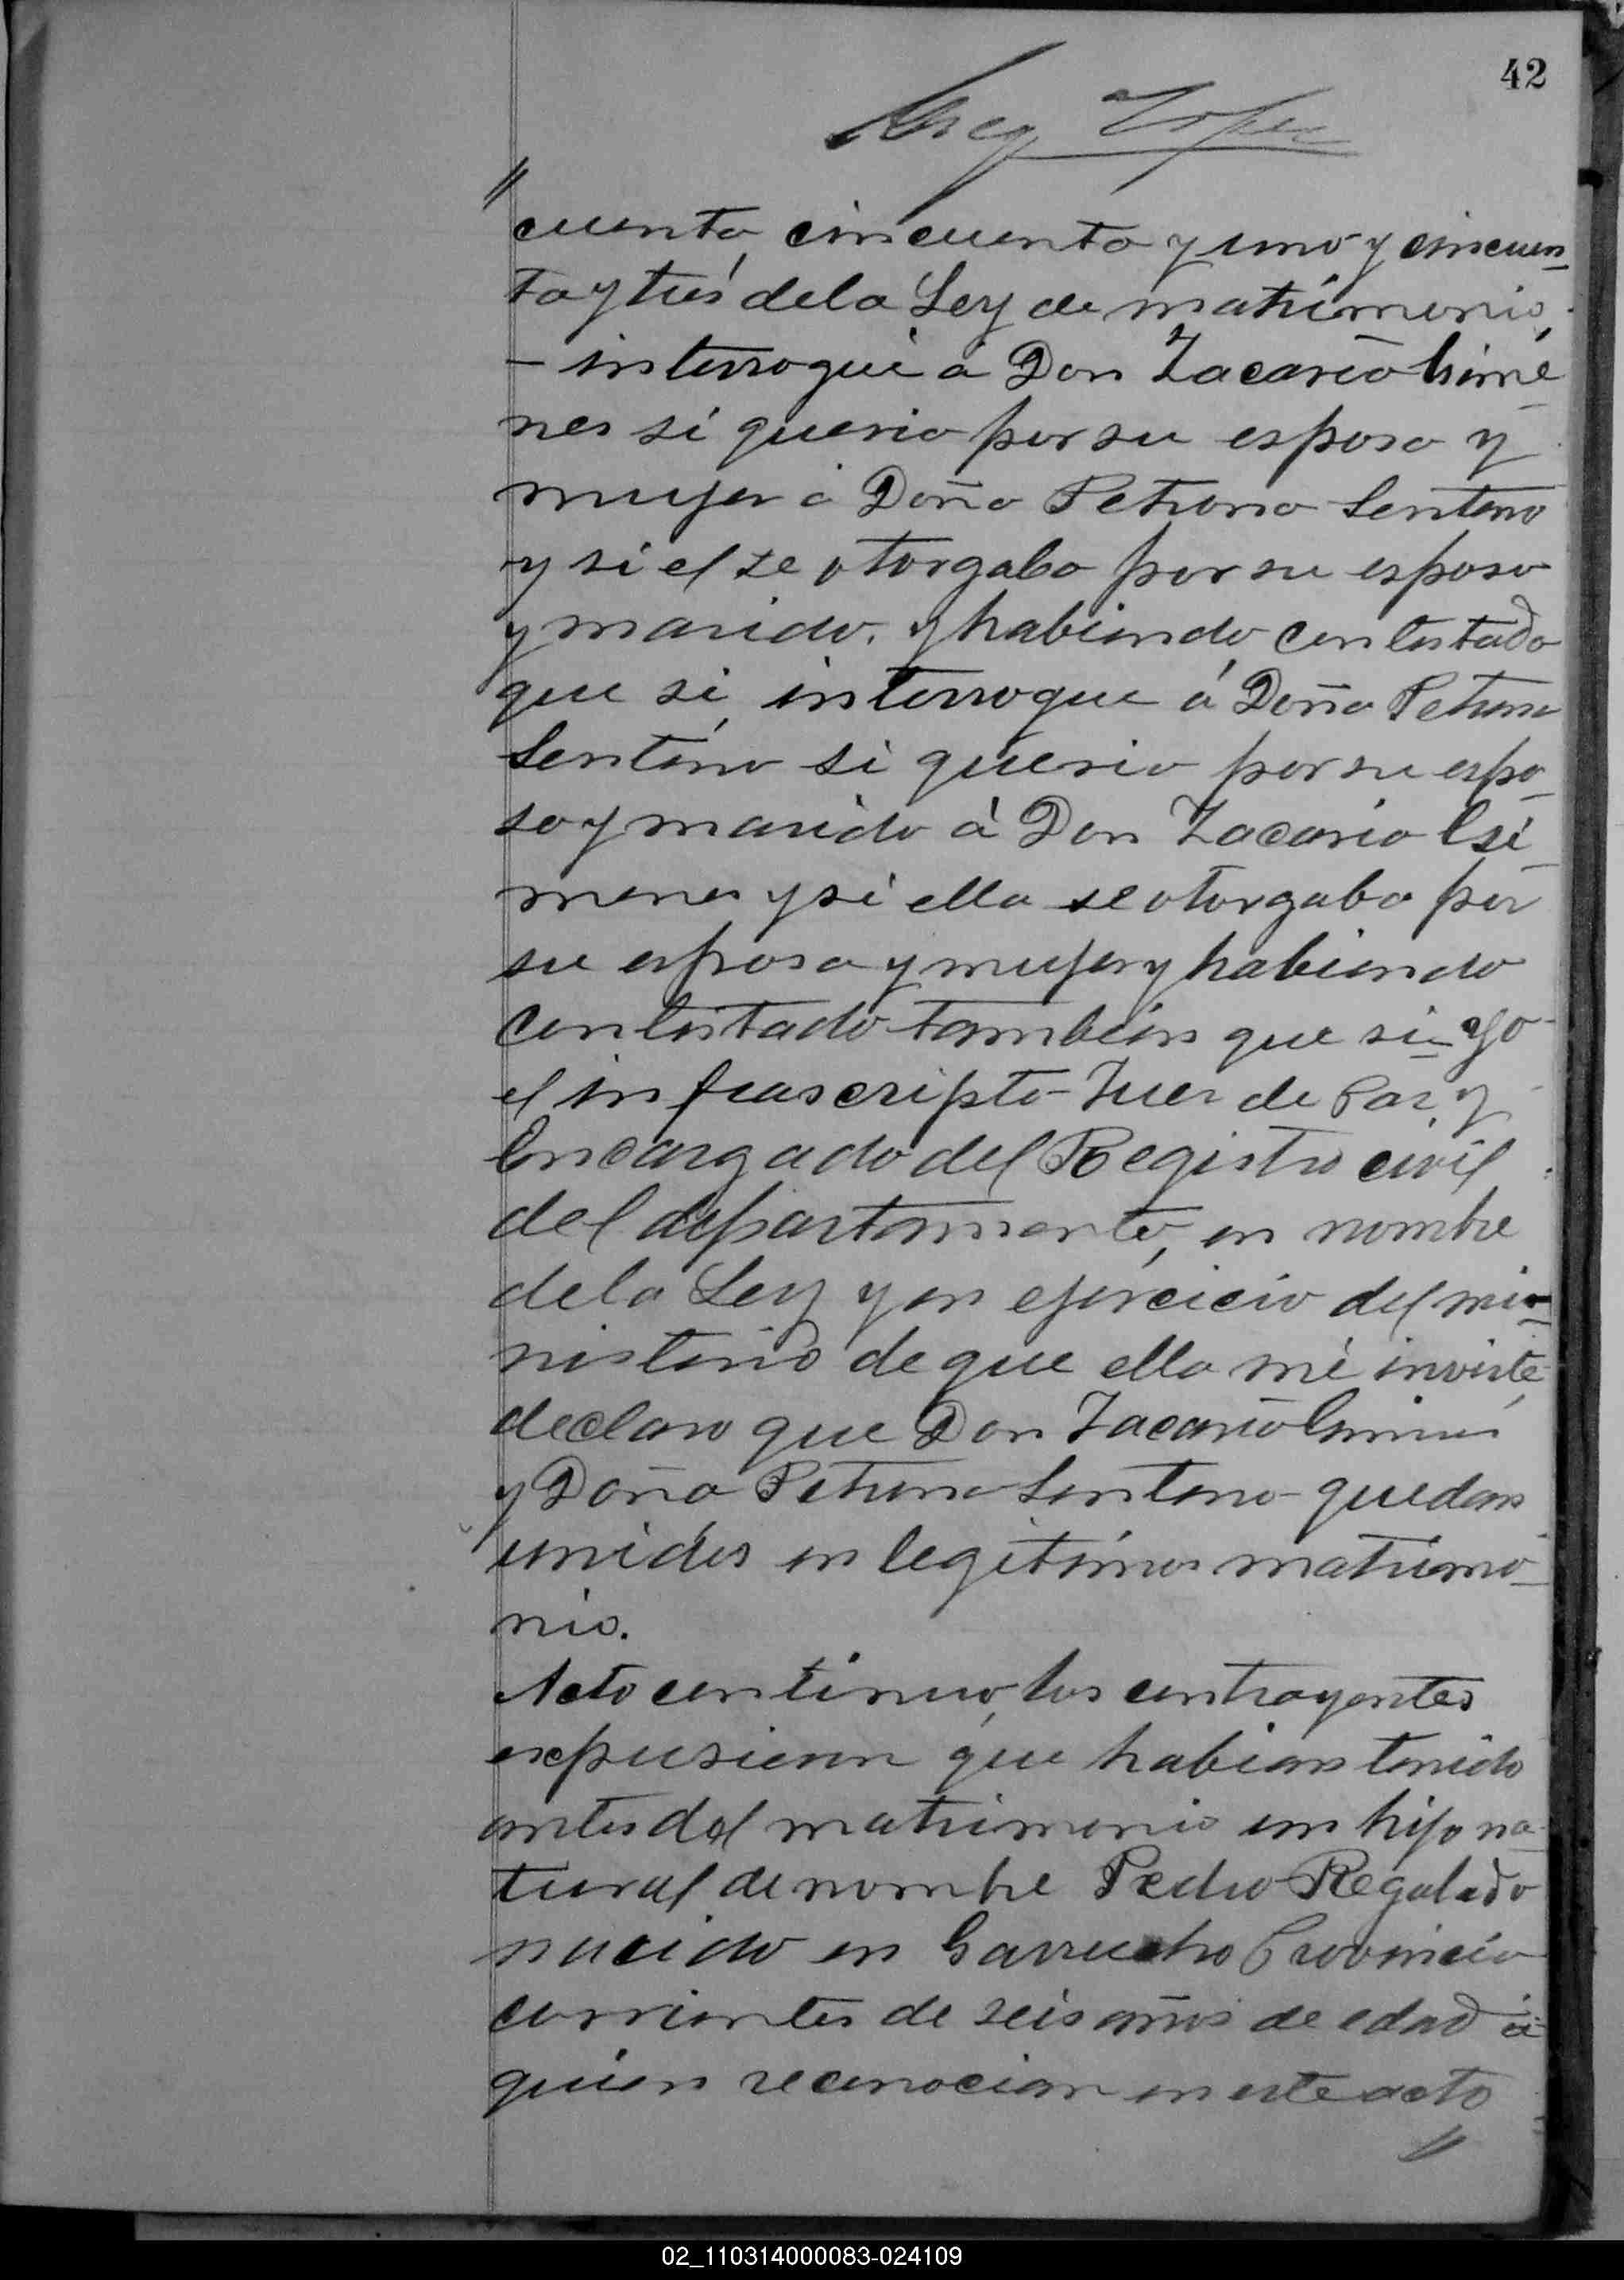 42
"
cuenta, cincuenta y uno y cincuen_
ta y tres de la Ley de matrimonio,
– interrogué á Don Zacaria Gimé_
nes si queria por su esposa y
muger á Doña Petrona Senteno
y si el se otorgaba por su esposo
y marido. y habiendo contestado
que si, interrogue á Doña Petrona
Senteno si queria por su espo_
so y marido á Don Zacaria Gsi_
menes y si ella se otorgaba por
su esposa y muger y habiendo
contestado tambien que si – Yo
el infrascripto Juez de Paz y
Encargado del Registro civil
del departamento, en nombre
de la Ley y en ejercicio del mi_
nisterio de que ella me inviste,
declaro que Don Zacaria Gimenes
y Doña Petrona Senteno quedan
unidos en legitimo matrimo_
nio.
Acto continuo, los contrayentes
expusieron que habian tenido
antes del matrimonio un hijo na_
tural de nombre Pedro Regalado
nacido en Garrucho Provincia
corrientes de seis años de edad á
quien reconocian en este acto
"
02_110314000083-024109